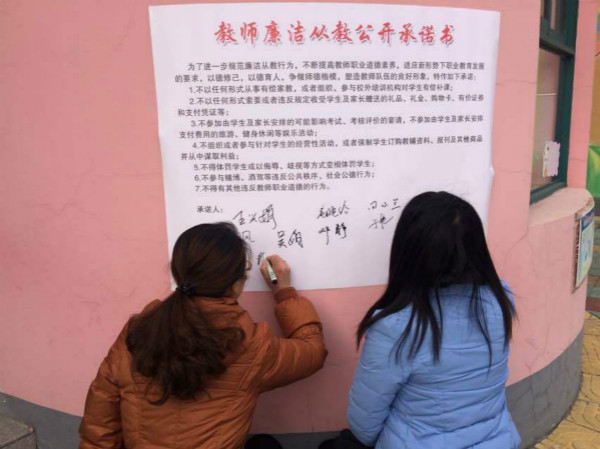 教师廉洁从教公开承诺书
为了进一步规范廉洁从教行为，不断提高教师职业道德素养，适应新形势下职业教育发展
的要求，以德修己，以德育人，争做师德楷模，塑造教师队伍的良好形象，特作如下承诺：
1.不以任何形式从事有偿家教，或者组织、参与校外培训机构对学生有偿补课；
2.不以任何形式索要或者违反规定收受学生及家长赠送的礼品、礼金、购物卡、有价证券
和支付凭证等；
3.不参加由学生及家长安排的可能影响考试、考核评价的宴请，不参加由学生及家长安排
支付费用的旅游、健身休闲等娱乐活动；
4.不组织或者参与针对学生的经营性活动，或者强制学生订购教辅资料、报刊及其他商品
并从中谋取利益；
5.不得体罚学生或以侮辱、歧视等方式变相体罚学生；
6.不参与赌博、酒驾等违反公共秩序、社会公德行为；
7.不得有其他违反教师职业道德的行为。
承诺人：